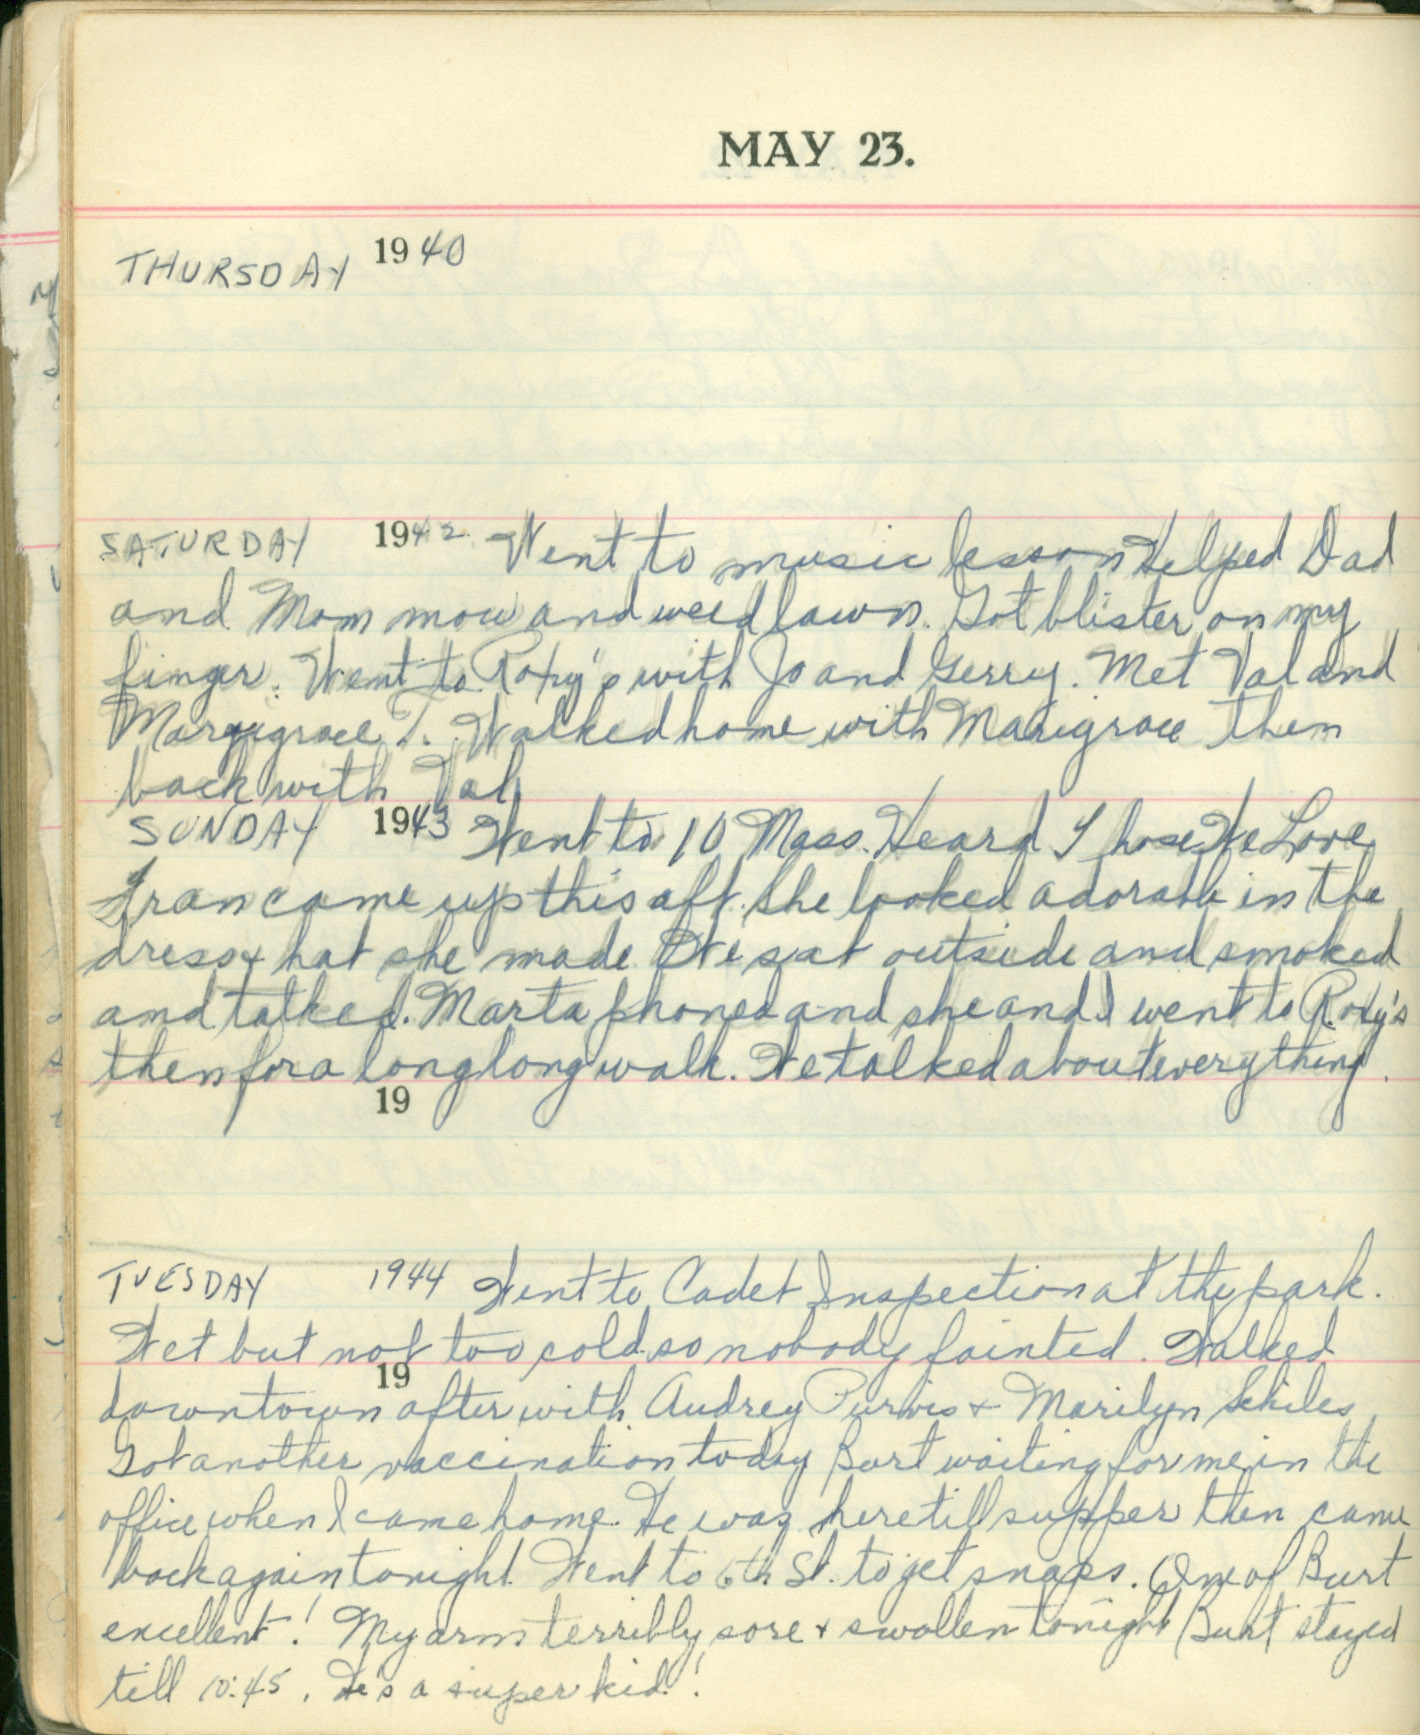 MAY 23.
THURSDAY 1940
SATURDAY 1942 Went to music lesson Helped Dad
and Mom mow and weed lawn. Got blister on my
finger. Went to Roxy's with Jo and Gerry. Met Val and
Marygrace T. Walked home with Marigrace then
back with Val
SUNDAY 1943 Went to 10 Mass. Heard Those We Love
Fran came up this aft. She looked adorable in the
dress & hat she made. We sat outside and smoked
and talked. Marta phoned and she and I went to Roxy's
then for a long long walk. We talked about everything.
19
TUESDAY 1944 Went to Cadet Inspection at the park.
Wet but not too cold so nobody fainted. Walked
19
downtown after with Audrey Purvis & Marilyn Schiles
Got another vaccination today Burt waiting for me in the
office when I came home. He was here till supper then came
back again tonight. Went to 6th St. to get snaps. One of Burt
excellent! My arm terribly sore & swollen tonight Burt stayed
till 10:45. He's a super kid!